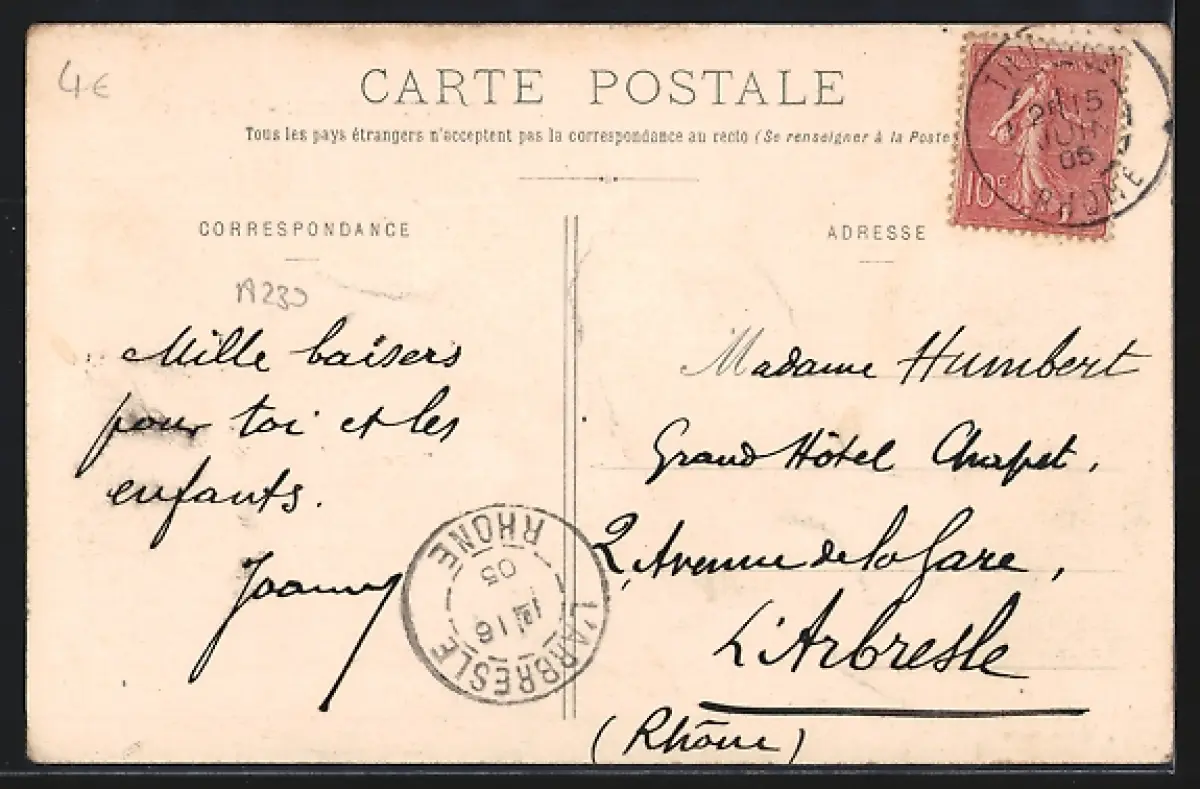 4€
CARTE POSTALE
Tous les pays étrangers n'acceptent pas la correspondance au recto (Se renseigner à la Poste
15
JUIN
05
RHONE
10c
CORRESPONDANCE
ADRESSE
A230
Mille baisers
pour toi et les
enfants.
Joanny
Madame Humbert
Grand Hôtel Chapet,
2, Avenue de la Gare,
L'Arbresle
(Rhône)
L'ARBRESLE
16
05
RHONE